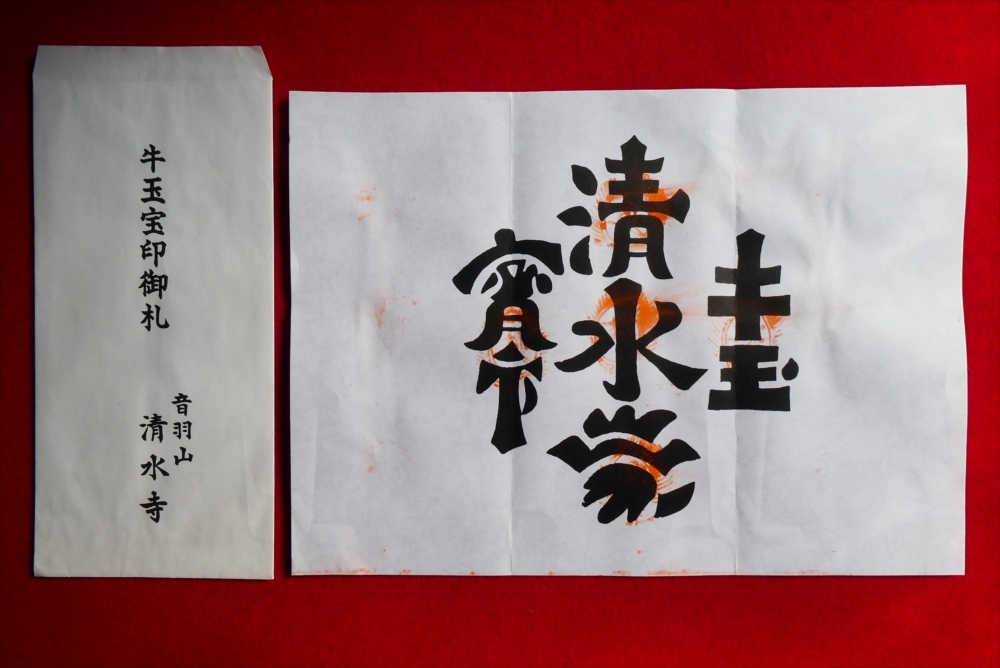 牛玉宝印御札
音羽山
清水寺
牛玉
清水
寳印